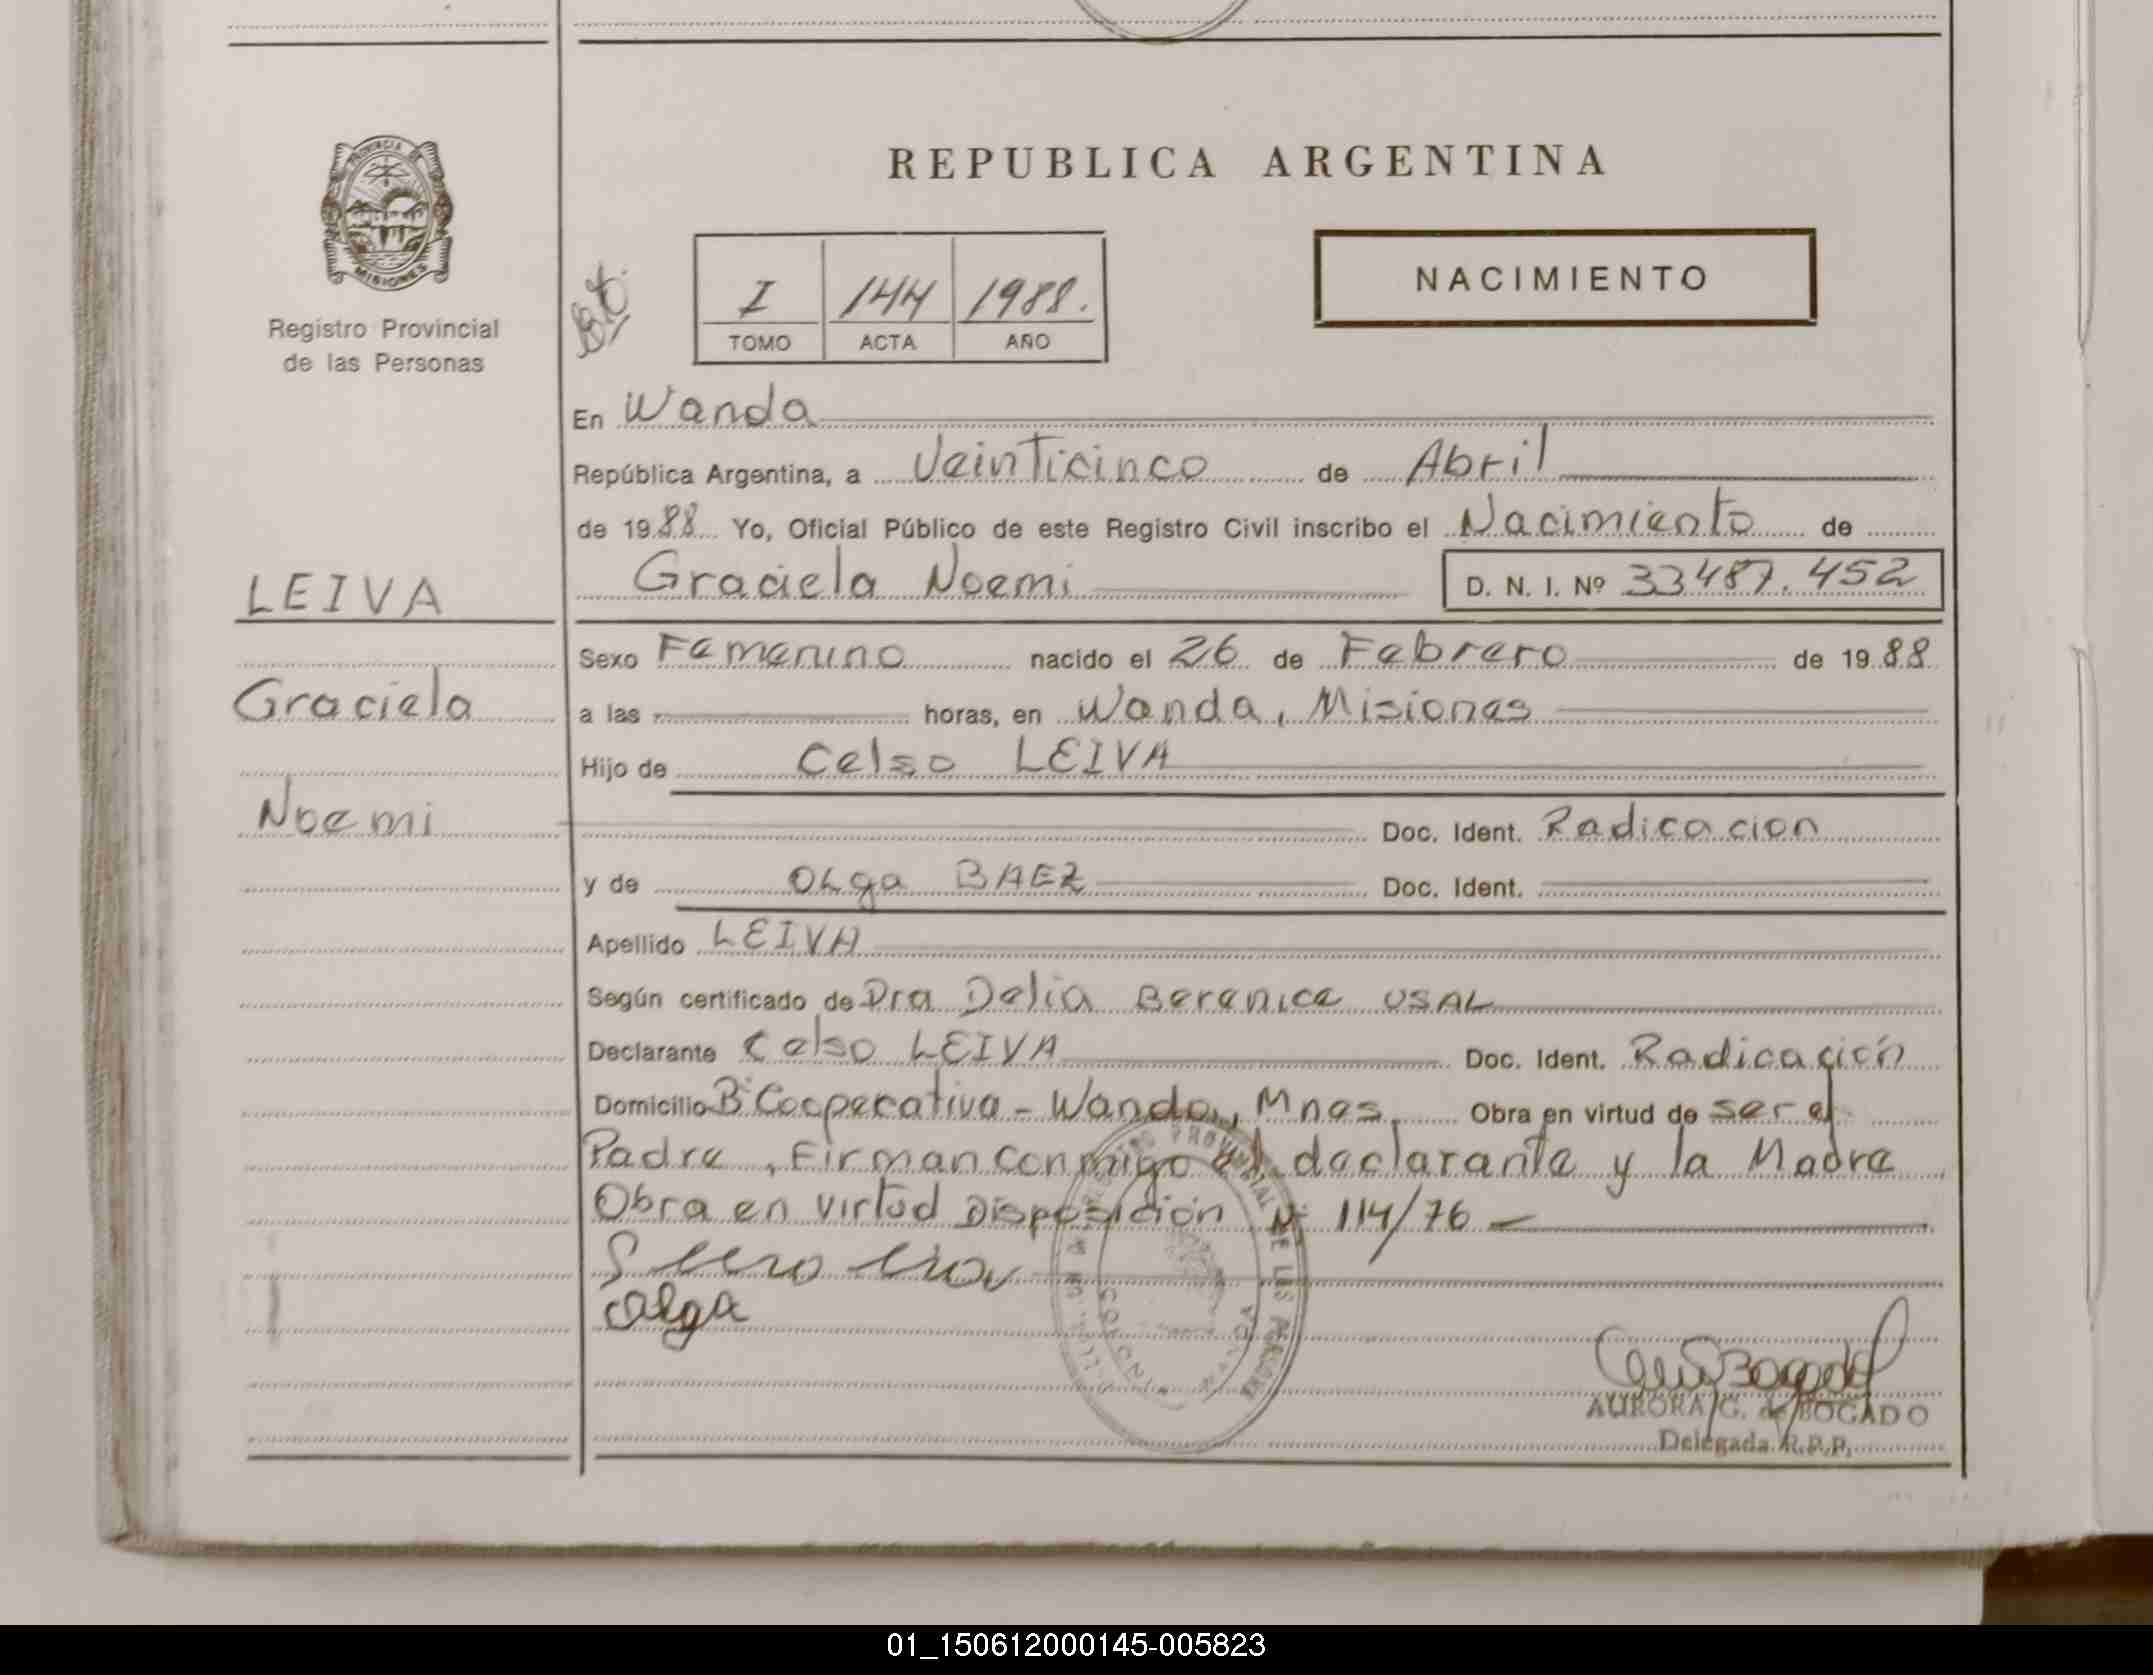 REPUBLICA ARGENTINA
PROVINCIA DE
MISIONES
Registro Provincial
de las Personas
I 144 1988.
TOMO ACTA AÑO
NACIMIENTO
En Wanda
República Argentina, a Veinticinco de Abril
de 1988 Yo, Oficial Público de este Registro Civil inscribo el Nacimiento de
Graciela Noemi D. N. I. Nº 33487.452
LEIVA
Graciela
Noemi
Sexo Femenino nacido el 26 de Febrero de 1988
a las horas, en Wanda, Misiones
Hijo de Celso LEIVA
Doc. Ident. Radicacion
y de OLga BAEZ Doc. Ident.
Apellido LEIVA
Según certificado de Dra Delia Berenice USAL
Declarante Celso LEIVA Doc. Ident. Radicación
Domicilio Bº Cooperativa - Wanda, Mnes. Obra en virtud de ser el
Padre, Firman conmigo el declarante y la Madre
Obra en virtud Disposición Nº 114/76 —
Olga
AURORA G. de BOGADO
Delegada R.P.P.
01_150612000145-005823